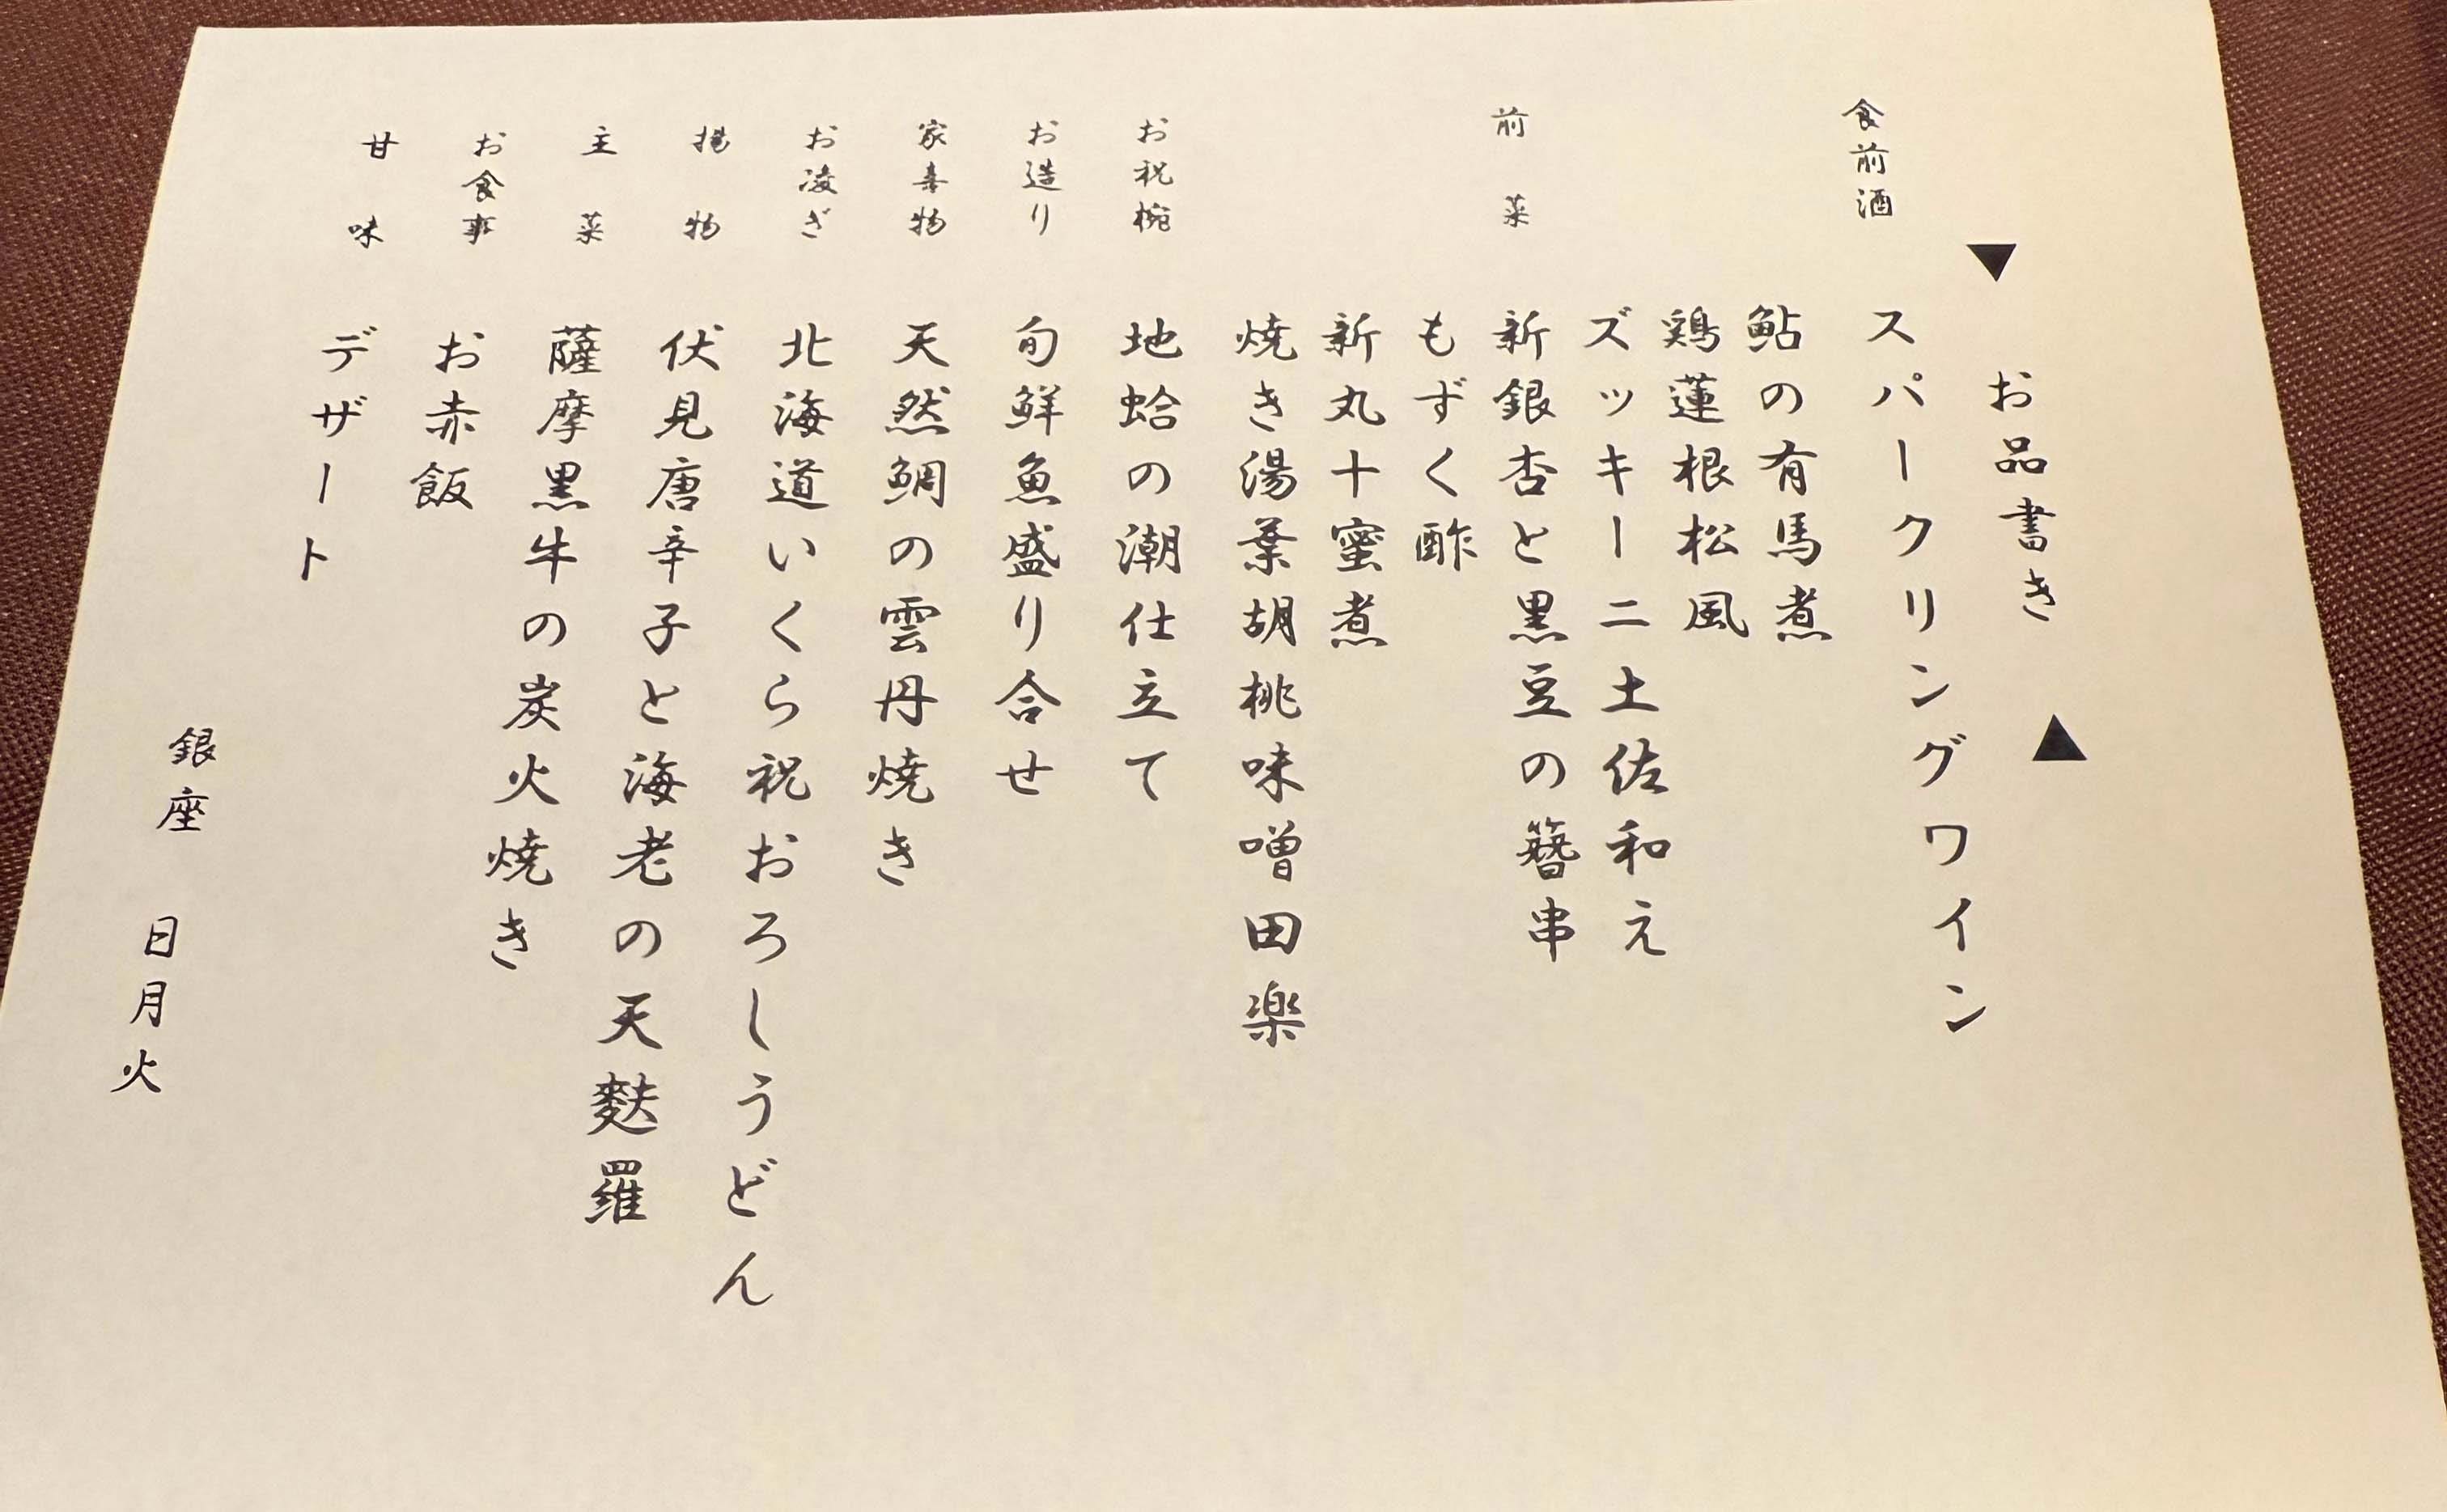 ▼ お品書き ▲
食前酒 スパークリングワイン
鮎の有馬煮
鶏蓮根松風
ズッキーニ土佐和え
前菜 新銀杏と黒豆の簪串
もずく酢
新丸十蜜煮
焼き湯葉胡桃味噌田楽
お祝椀 地蛤の潮仕立て
お造り 旬鮮魚盛り合せ
家喜物 天然鯛の雲丹焼き
お凌ぎ 北海道いくら祝おろしうどん
揚物 伏見唐辛子と海老の天麩羅
主菜 薩摩黒牛の炭火焼き
お食事 お赤飯
甘味 デザート
銀座 日月火